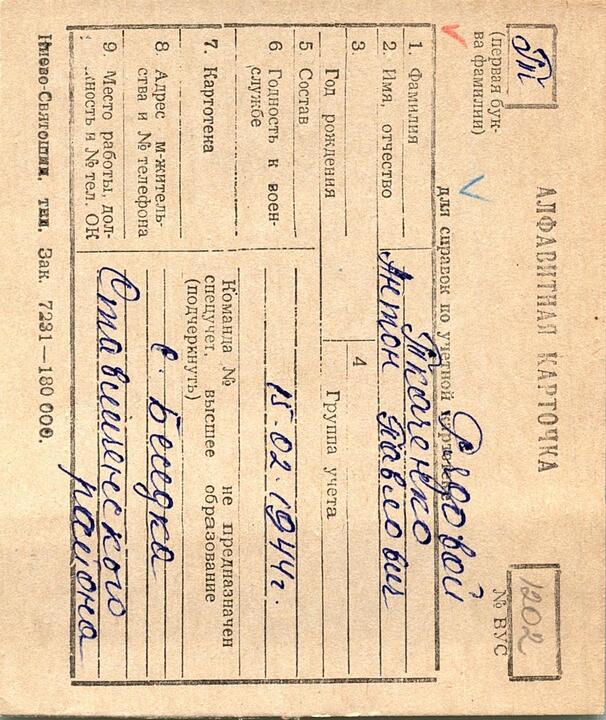 Тк
(первая бук-
ва фамилии)
АЛФАВИТНАЯ КАРТОЧКА
1202
№ ВУС
для справок по учетной картотеке
Рядовой
1. Фамилия Ткаченко
2. Имя, отчество Антон Павлович
3. Год рождения
4 Группа учета
5 Состав
6 Годность к воен-
службе
15-02-1944г.
7. Картотека
Команда № не предназначен
спецучет, высшее образование
(подчеркнуть)
8 Адрес м-житель-
ства и № телефона
с. Беседка
9. Место работы, дол-
жность и № тел. ОК
Ставищенского
района
Киево-Святошин. тип. Зак. 7231—180 000.